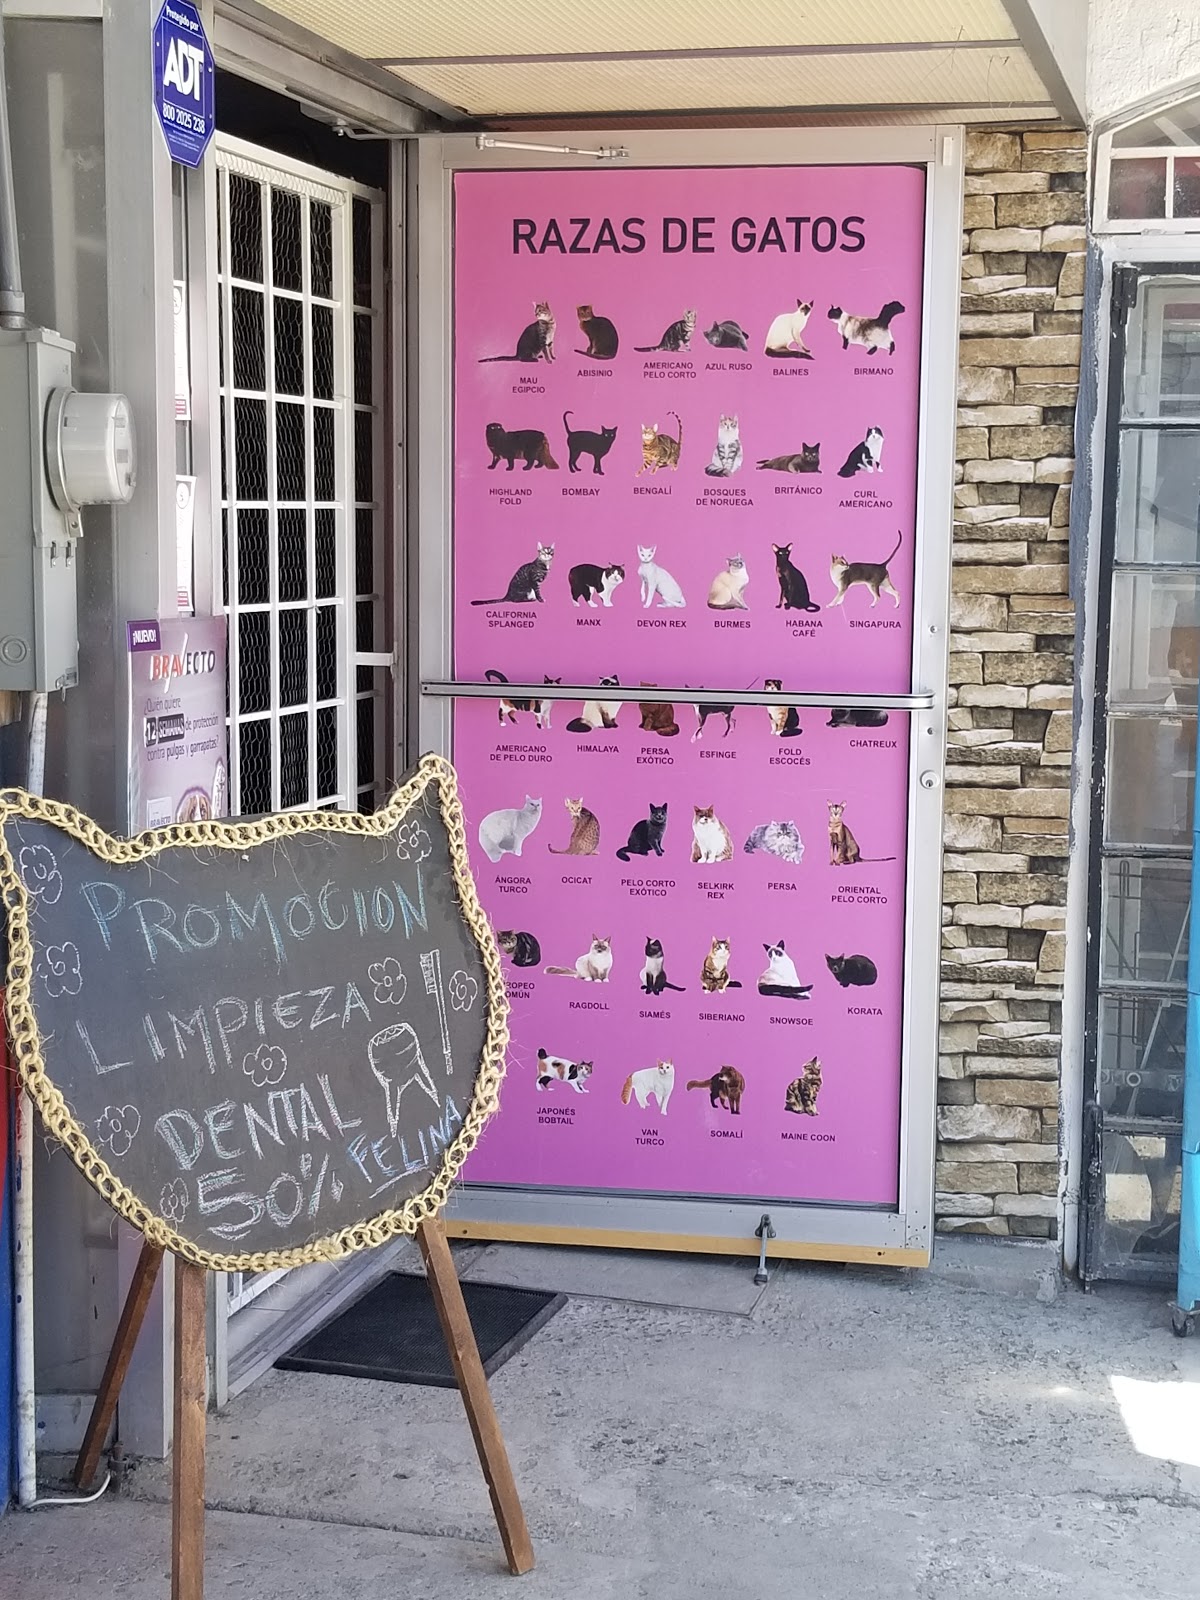 Protegido por
ADT
800 2025 238
RAZAS DE GATOS
MAU
EGIPCIO
ABISINIO
AMERICANO
PELO CORTO
AZUL RUSO
BALINES
BIRMANO
HIGHLAND
FOLD
BOMBAY
BENGALÍ
BOSQUES
DE NORUEGA
BRITÁNICO
CURL
AMERICANO
CALIFORNIA
SPLANGED
MANX
DEVON REX
BURMES
HABANA
CAFÉ
SINGAPURA
AMERICANO
DE PELO DURO
HIMALAYA
PERSA
EXÓTICO
ESFINGE
FOLD
ESCOCÉS
CHATREUX
ÁNGORA
TURCO
OCICAT
PELO CORTO
EXÓTICO
SELKIRK
REX
PERSA
ORIENTAL
PELO CORTO
ROPEO
OMÚN
RAGDOLL
SIAMÉS
SIBERIANO
SNOWSOE
KORATA
JAPONÉS
BOBTAIL
VAN
TURCO
SOMALÍ
MAINE COON
¡NUEVO!
BRAVECTO
¿Quién quiere
12 SEMANAS de protección
contra pulgas y garrapatas?
PROMOCION
LIMPIEZA
DENTAL
50% FELINA